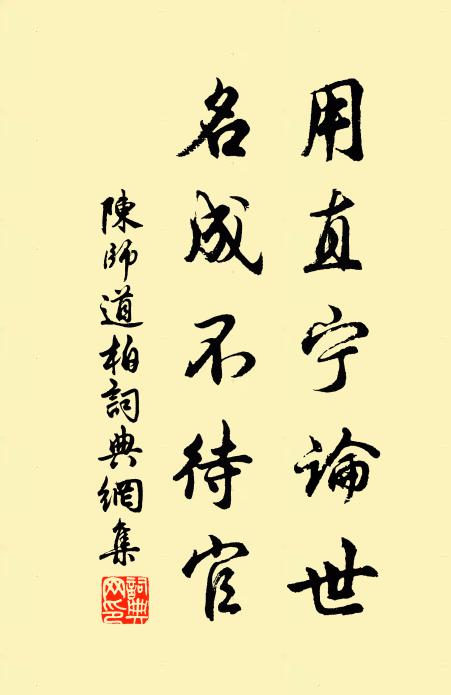 用直宁論世
名成不待官
陳師道柏詞典網集
詞典网印